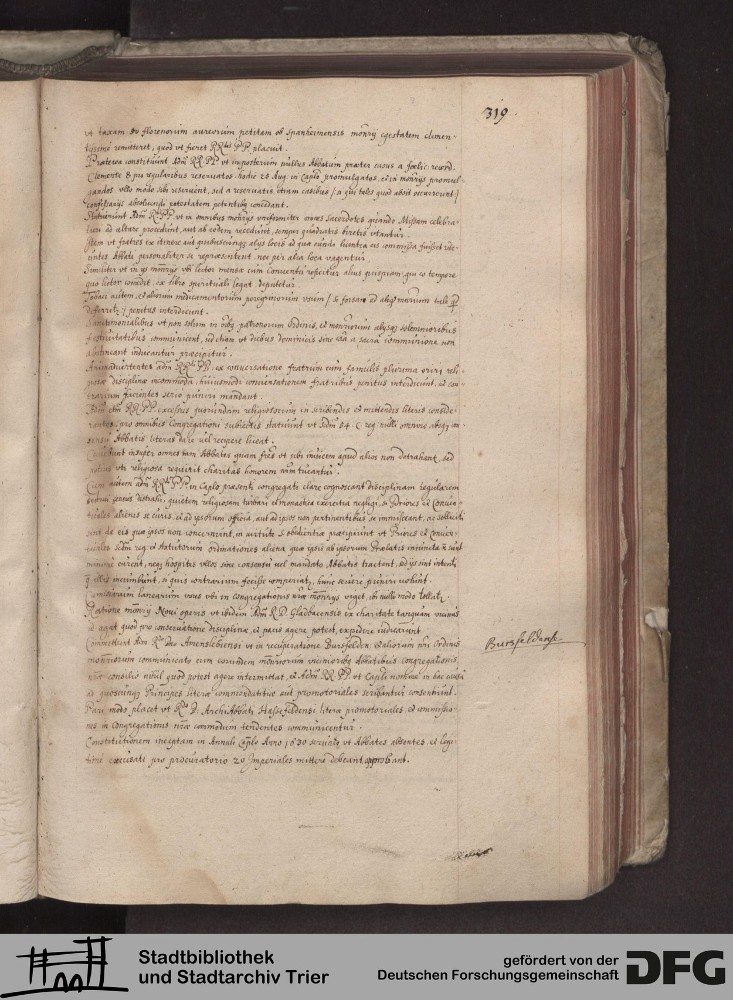 319
vt taxam 80 florenorum aureorum petitam ob Spanheimensis monrij egestatem clemen-
tissime remitteret, quod vt fieret RRdis PP. placuit.
Praeterea constituunt Adm RR PP vt imposterum nullus Abbatum praeter casus a foelic: record.
Clemente 8 pro regularibus reseruatos hodie 28 Aug. in Caplo promulgatos, et in monrijs promul-
gandos vllo modo sibi reseruent, sed a reseruatis etiam casibus /: a qui tales quod absit occurrerent :/
confessarijs absoluendi potestatem petentibq concedant.
Statuerunt Adm R. PP. vt in omnibus monrijs vniformiter omnes Sacerdotes quando Missam celebra-
turi ad altare procedunt, aut ab eodem recedunt, semper quadratis biretis vtantur.
Item vt fratres ex itinere aut quibuscunq alijs locis ad quae eundi licentia eis commissa fuisset rde-
untes Abbati personaliter se repraesentent, nec per alia loca vagentur.
Similiter vt in ijs monrijs vbi lector mensae cum Conuentu reficitur alius quispiam, qui eo tempore
quo lector comedit, ex libro spirituali legat, deputetur.
Tobaci autem, et aliorum medicamentorum peregrinorum vsum /: si forsan ad aliq monrium tale qd
deferretur :/ penitus interdicunt.
Sanctimonialibus vt non solum in festis patronorum Ordinis, et monriorum aliysq solemnioribus
festiuitatibus communicent, sed etiam vt diebus dominicis sine causa a sacra communione non
abstineant inducantur praecipitur.
Animaduertentes adm RRdi PP. ex conuersatione fratrum cum famulis plurima oriri reli-
giosae disciplinae incommoda, huiusmodi conuersationem fratribus penitus interdicunt, et con-
trarium facientes serio puniri mandant.
Adm etiam RR. PP. excessus quorundam religiosorum in scribendis et mittendis literis conside-
rantes, pro omnibus Congregationi subiectis statuunt vt secdm 54. C. reg: nulli omnino absq con-
sensu Abbatis literas dare vel recipere liceat.
insuper omnes tam Abbates quam fres vt sibi inuicem apud alios non detrahant, sed
potius vti religiosa requirit charitas honorem tueantur.
Cum autem adm RRdi PP. in Caplo praesenti congregati clare cognoscant disciplinam regularem
distrahi, quietem religiosam turbari et monastica exercitia negligi, si Priores et Conuen-
tuales alienis se curis, et ad ipsorum officia, aut ad ipsos non pertinentibus se immisceant, ac solliciti
sint de eis quae ipsos non concernunt, in virtute S. obedientiae praecipiunt vt Priores et Conuen-
tuales secdm reg: et statutorum ordinationes aliena quae ipsis ab ipsorum Praelatis iniuncta n sunt
minime curent, neq hospites vllos sine consensu vel mandato Abbatis tractent, sed ijs sint intenti
q illis incumbunt, si quis contrarium fecisse comperiatur, hunc seuere puniri volunt.
Camisiarum linearum vsus vbi in congregationis nrae monrijs viget, ibi nullo modo tollatur.
Ratione monrij Noui operis vt ibidem Adm R. D. Gladbacensis ex charitate tanquam vicinus
id agat quod pro conseruatione disciplinae, et pacis agere potest, expedire iudicarunt.
Commiserunt Adm Rdo dno Amenslebiensi vt in recuperatione Bursfelden: et aliorum nri Ordinis
monriorum communicato cum eorundem monriorum vicinioribq abbatibus congregationis
nrae consilio nihil quod potest agere intermittat, et Adm RR. PP. vt Capli nomine in hac causa
ad quoscunq Principes literae commendatitiae aut promotoriales scribantur consentiunt.
Pari modo placet vt Rdo D. Archi Abbati Hassefeldensi literae promotoriales, et commissio-
nes in Congregationis nrae commodum tendentes communicentur.
Constitutionem inceptam in Annali Caplo Anno 1630 seruato vt Abbates absentes, et legi-
time excusati pro procuratorio 20 Imperiales mittere debeant approbant.
Bursfeldense
Stadtbibliothek
und Stadtarchiv Trier
gefördert von der
Deutschen Forschungsgemeinschaft
DFG